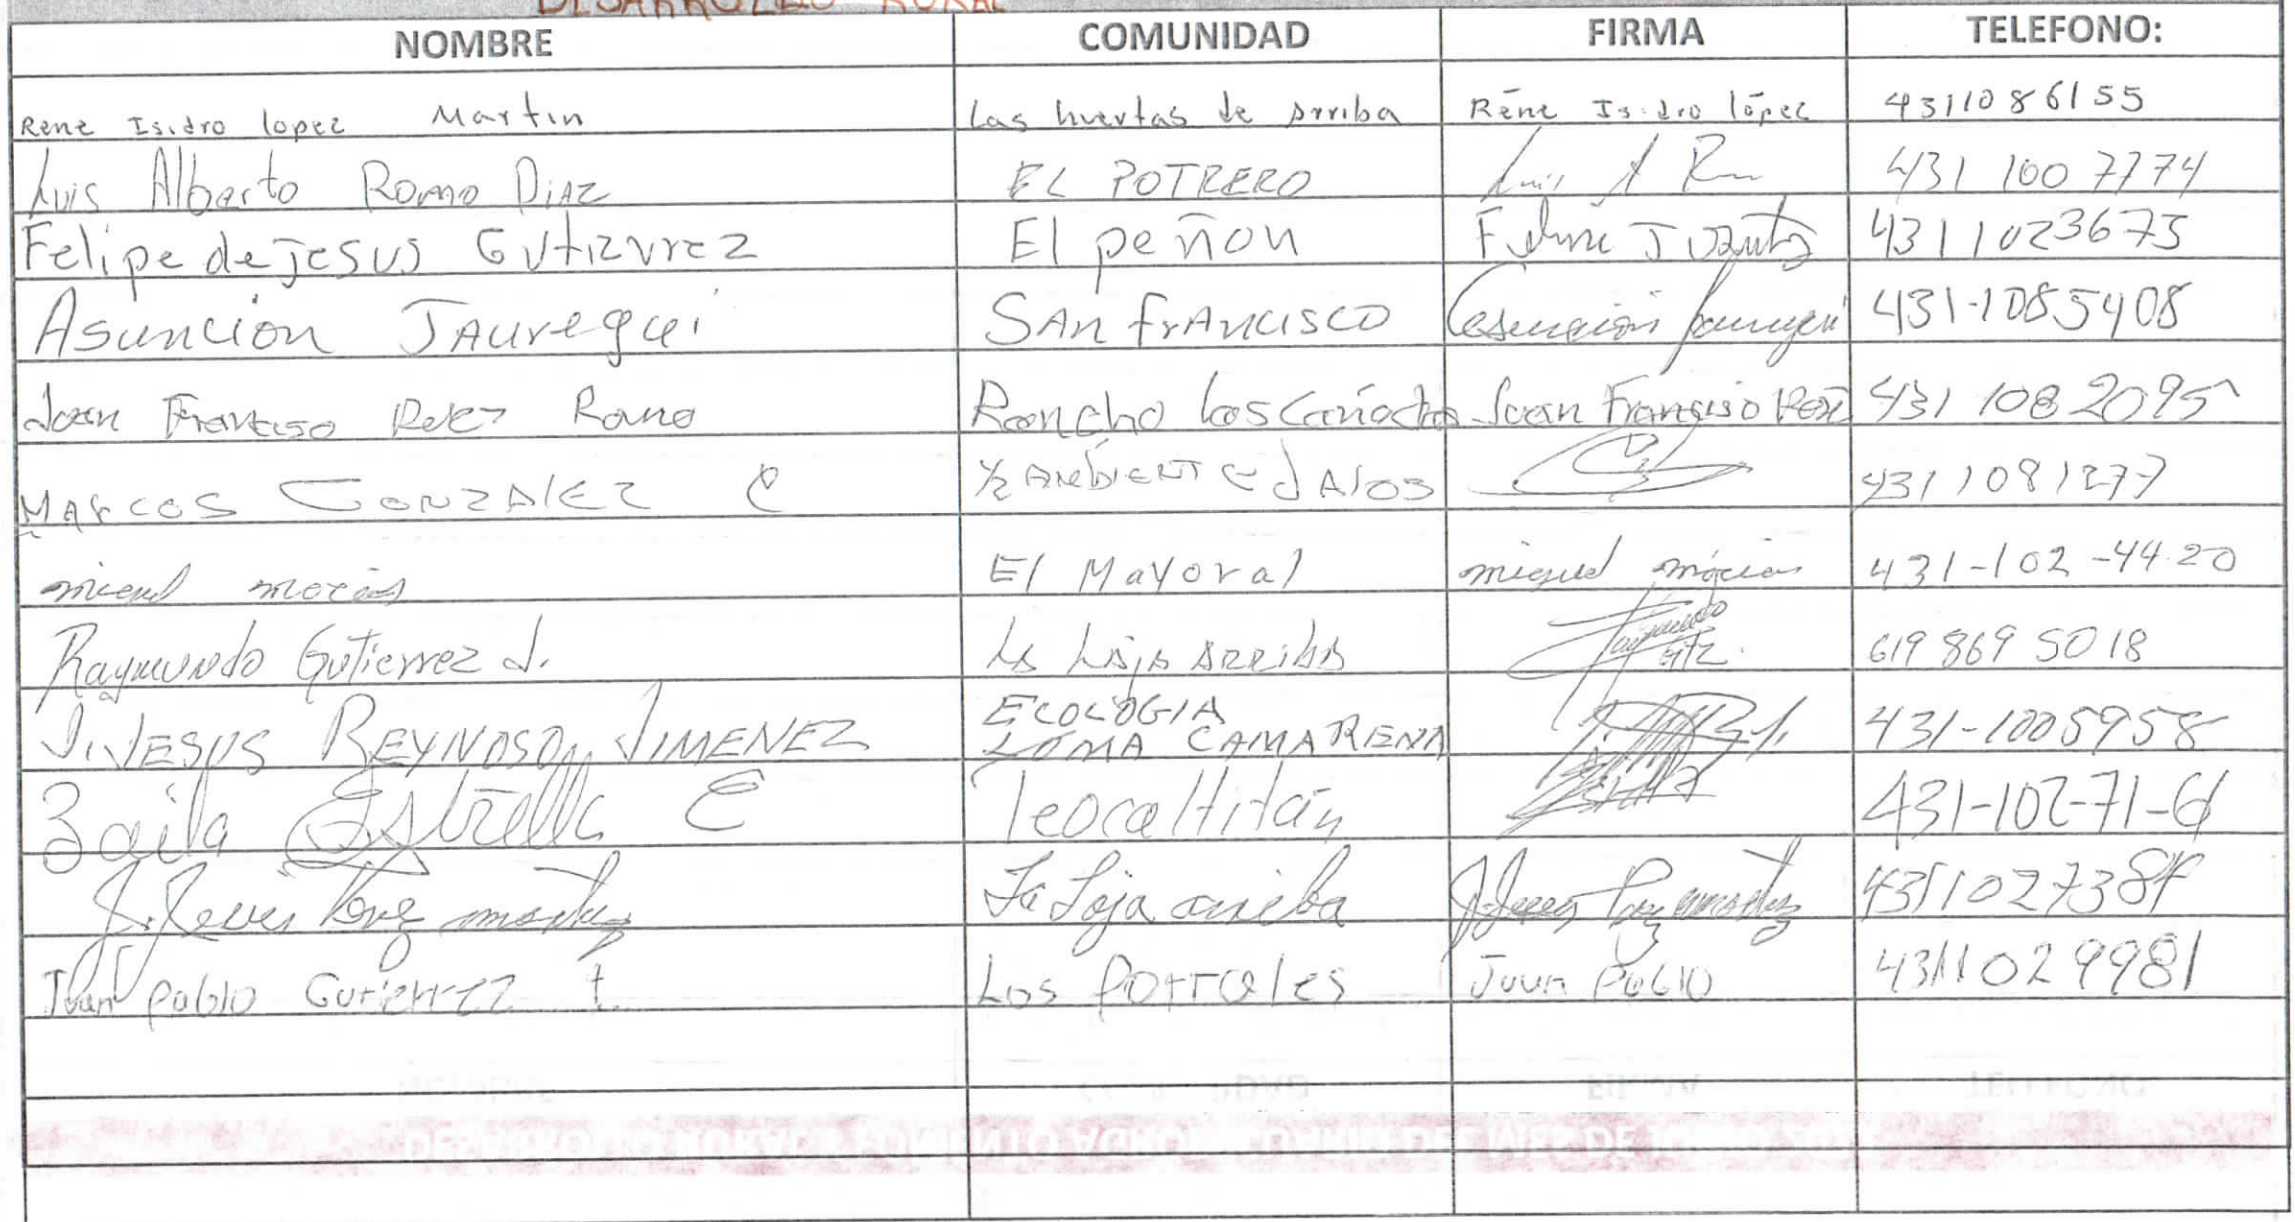 DESARROLLO RURAL
NOMBRE COMUNIDAD FIRMA TELEFONO:
Rene Isidro lopez Martin Las huertas de arriba Réne Isidro lópez 4311086155
Luis Alberto Romo Diaz EL POTRERO Luis A R 431 100 7774
Felipe de jesus Gutizvrez El peñon 4311023675
Asuncion JAuregui SAn frAncisco Asuncion Jauregui 431-1085408
Juan Francisco Perez Romo Rancho Los Cañadas Juan Francisco Pere 431 108 2095
MARCOS GONZALEZ C 4311081277
miguel macias El Mayoral miguel macias 431-102-44-20
Raymundo Gutierrez J. La Laja Arriba Raymundo Gtz. 619 869 5018
J. JESUS REYNOSO JIMENEZ ECOLOGIA
LOMA CAMARENA 431-1005958
Zaila Estrella C Teocaltitán 431-102-71-61
J. Jesus La Laja arriba J. Jesus 4311027384
Juan pablo Gutierrez t. Los Portales Juan Pablo 4311029981